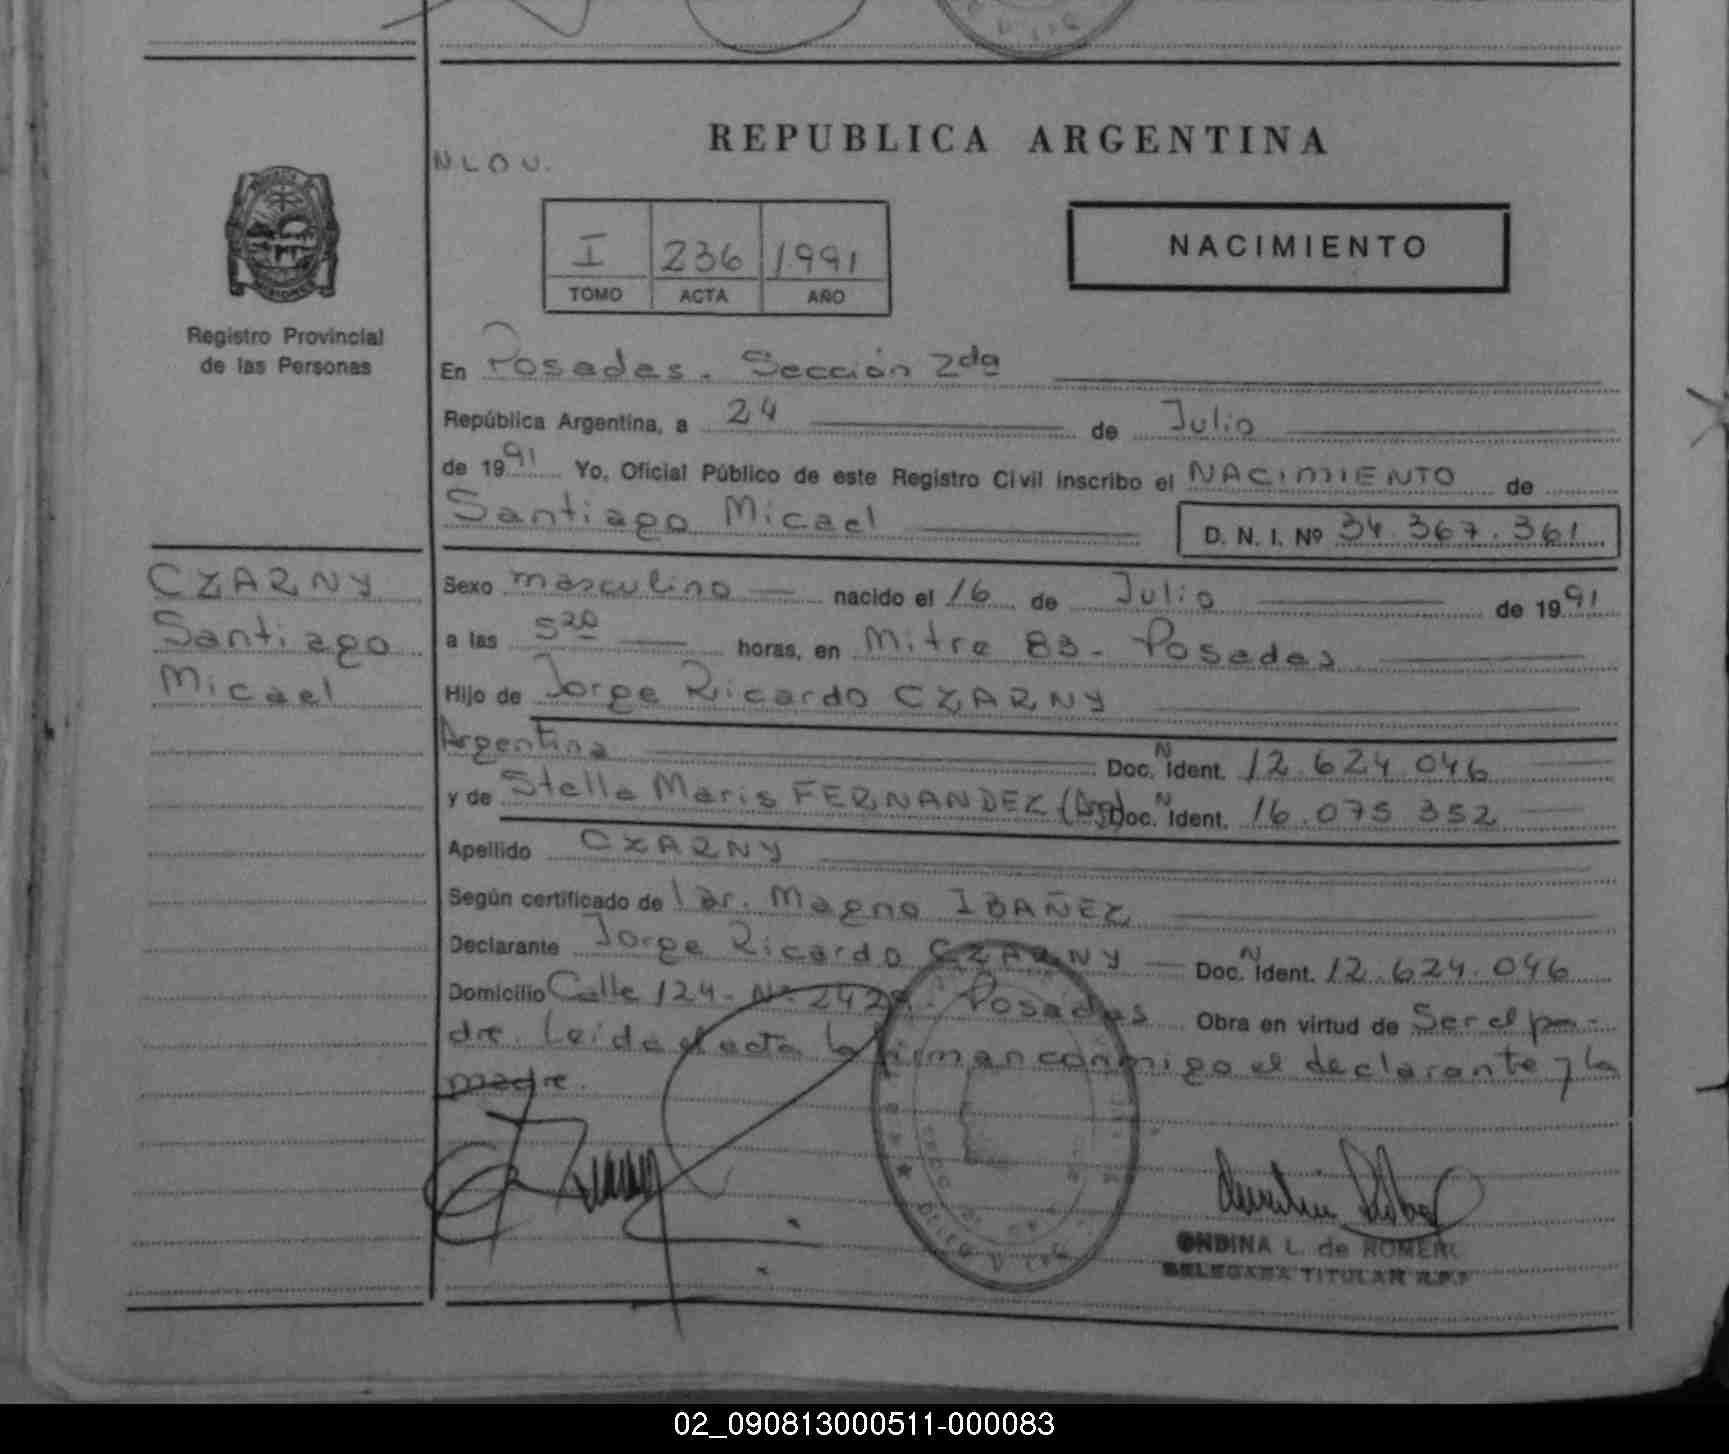 REPUBLICA ARGENTINA
N L O U.
I 236 1991
TOMO ACTA AÑO
NACIMIENTO
Registro Provincial
de las Personas
En Posadas. Sección 2da
República Argentina, a 24 de Julio
de 1991 Yo, Oficial Público de este Registro Civil inscribo el NACIMIENTO de
Santiago Micael D. N. I. Nº 34.367.361
CZARNY
Santiago
Micael
Sexo masculino nacido el 16 de Julio de 1991
a las 5 20 horas, en Mitre 83 - Posadas
Hijo de Jorge Ricardo CZARNY
Argentina Doc. N Ident. 12.624.046
y de Stella Maris FERNANDEZ (Arg) Doc. N Ident. 16.075.352
Apellido CZARNY
Según certificado de Dr. Magno IBAÑEZ
Declarante Jorge Ricardo CZARNY Doc. N Ident. 12.624.046
Domicilio Calle 124 - Nº 2429 - Posadas Obra en virtud de Ser el pa-
dre. Leída el acta la firman conmigo el declarante y la
madre.
ONDINA L. de ROMERO
DELEGADA TITULAR R.P.P
02_090813000511-000083